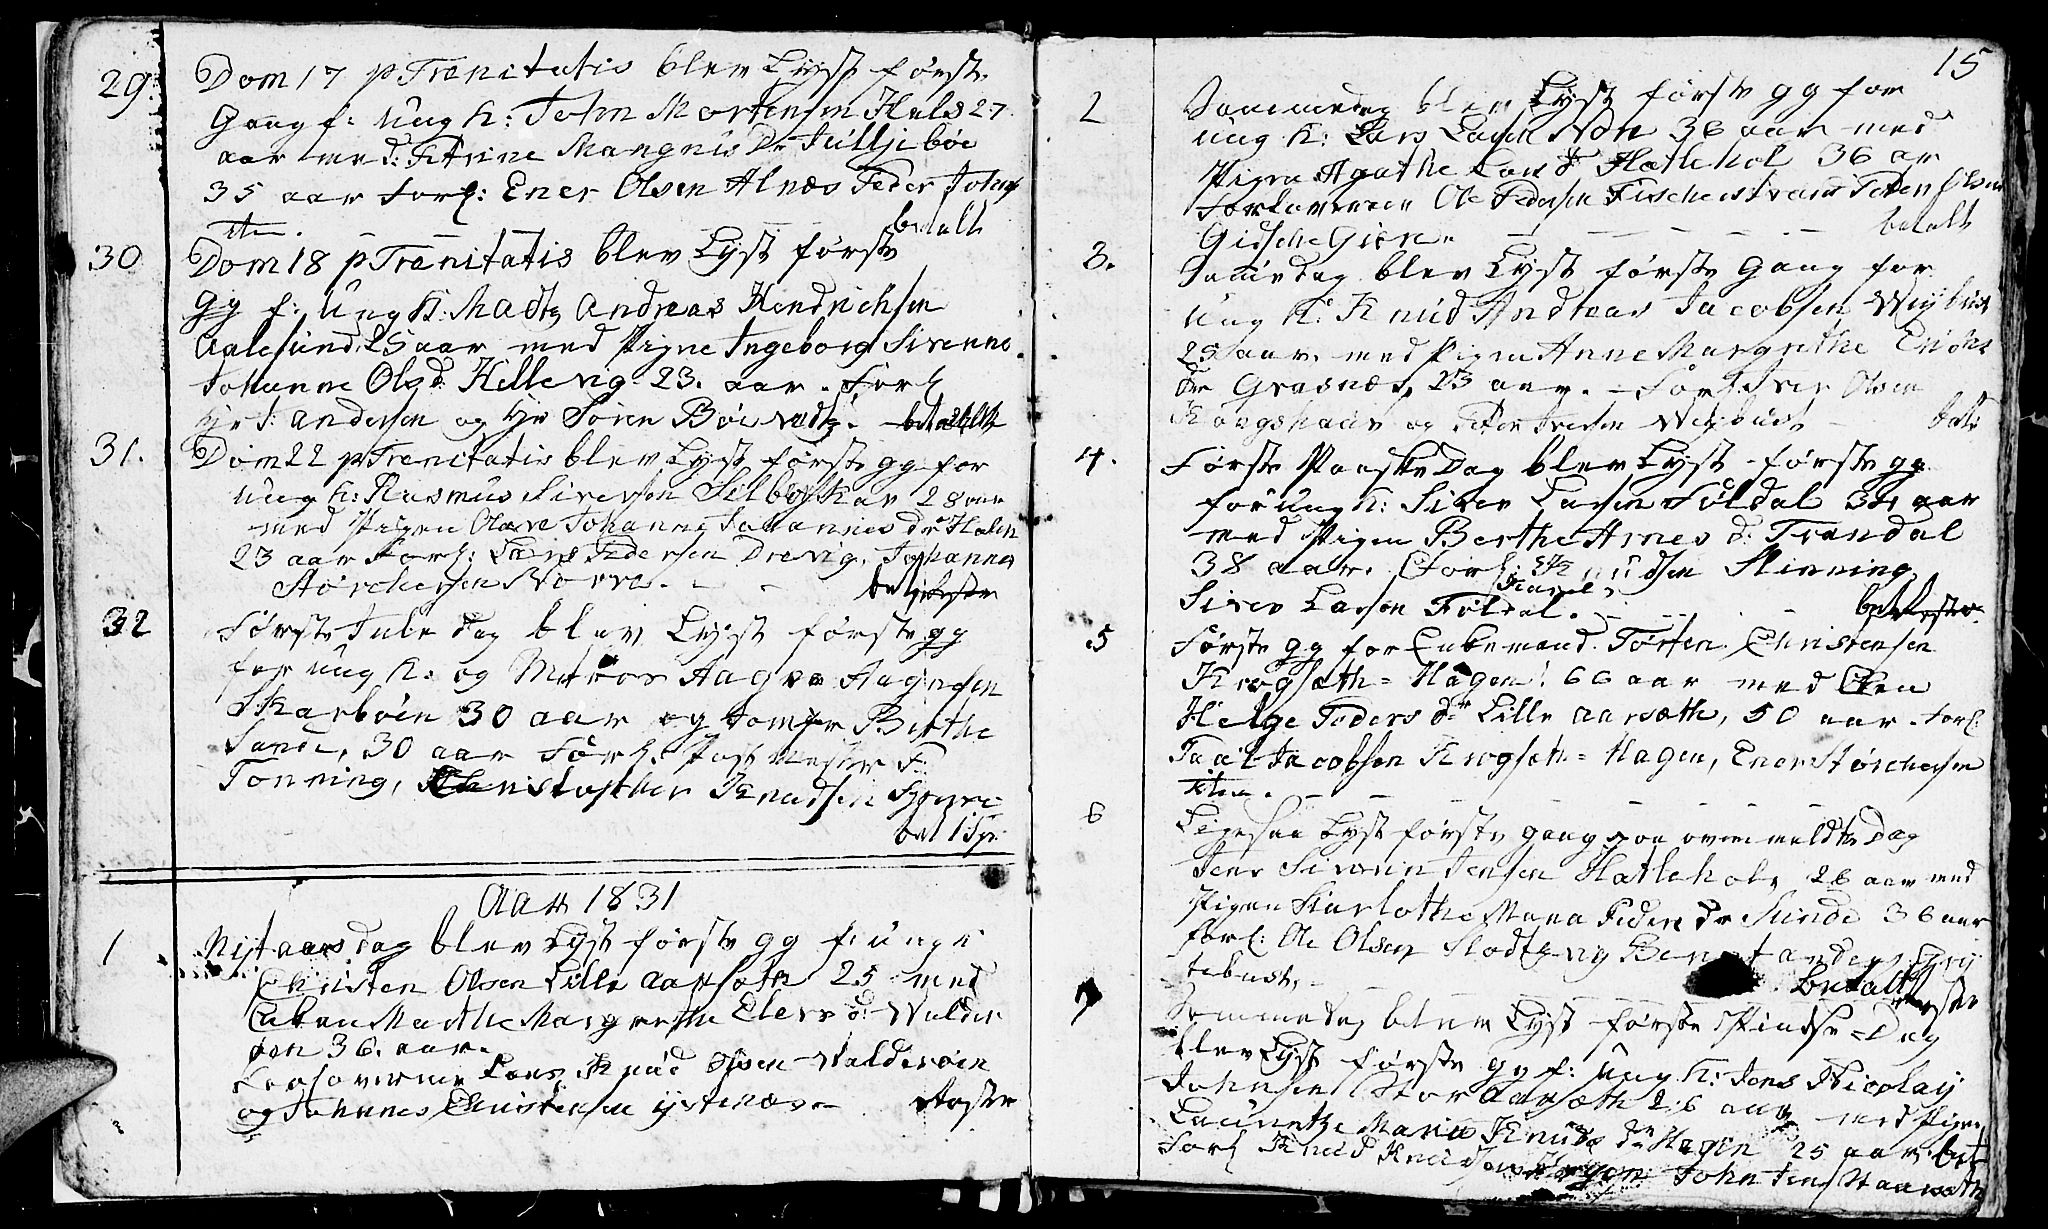 29 Dom 17 p Trenitatis blev Lyst første
Gang f: Ung k: John Mortensen Hals 27
aar med: Katrine Mangnus Dr Tulljebøe
35 aar Forl: Ener Olsen Alnæs Peder Johns
iten. betalt
30 Dom 18 p Trenitatis blev Lyst første
gg f: Ung K: Madtz Andreas Hendrichsen
Aalesund 25 aar med Pigne Ingeborg Sirenne
Johanne Olsd: Hellevig 23. aar. Forl
Hr J: Andersen og Hr Søren Bøe
31. Dom 22 p Trenitatis blev Lyst første gg for
Ung k: Rasmus Siversen Silbøskar 28 aar
med Pigen Olave Johanne Johannes Dr Holen
23 aar Forl: Lars Pedersen Drevig, Johannes
Størchersen
32 Første Jule dag blev Lyst første gg
for Ung k: og Matros Aage Aagesen
Skarbøen 30 aar og Jomfr Birthe
Sunde, 30 aar Forl. Post Mester F:
Tonning, Christopher Knudsen
bet 1 Spr
Aar 1831
1 Nytaars dag blev Lyst første gg f: unge
Christen Olsen Lille Aarsæth 25 med
Enken Marthe Margrethe Elers d: Walder
øen 36. aar.
Laasoverne Lars Knud Olsen Walderøen
og Johannes Christensen ystenæs
15
2 Sammedag blev Lyst første gg for
ung k: Lars Larsen 36 aar med
Pigen Agathe Lars d: Hatlehol 36 ar
Forloverne Ole Pedersen Fischerstrand Peder Olsen
Gidsche Giøre. betalt
3. Samedag blev Lyst første Gang for
Ung k: Knud Andreas Jacobsen
25 aar. med Pigen Anne Margrethe
dr Grasnæs, 23 aar. Forl. Iver Olsen
og Peder Iversen
4. Første Paaske Dag blev Lyst første gg
for ung k: Siver Larsen Føldal 34 aar
med Pigen Berthe Arnes d: Trandal
38 aar. Forl: Slinning
Siver Larsen Føldal.
5 Første gg for Enkemand Torsten Christensen
Krogsæth = Hagen: 66 aar med Enken
Helge Peders dr Lille Aarsæth, 50 aar. Forl:
Paal Jacobsen Krogsæth = Hagen, Ener Størchersen
iten.
6 Ligesaa Lyst første gang paa ovenmeldte Dag
Jens Simon Jensen Hatlehol 26 aar med
Pigen Karlothe Maria Peders dr Sunde 36 aar
Forl: Ole Olsen Slodtzvig
betalt
7 Sammedag blev Lyst første Pindse = Dag
blev Lyst første gg f: Ung k: Jens Nicolay
Johnsen Stor Aarsæth 26 aar med Pigen
Maria Knuds dr Hagen 25 aar bet
Forl Knud Knudsen Hagen John Jens